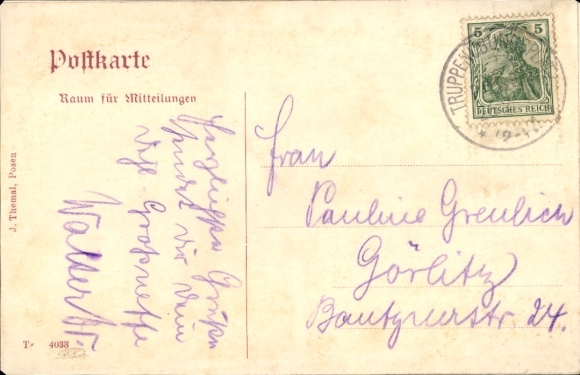 Postkarte
Raum für Mitteilungen
J. Themal, Posen
T· 4033
Herzlichsten Gruß
sendet Dir Dein
Großneffe
Walter
5 5
DEUTSCHES REICH
TRUPPEN
Frau
Pauline Greulich
Görlitz
Bautznerstr. 24.